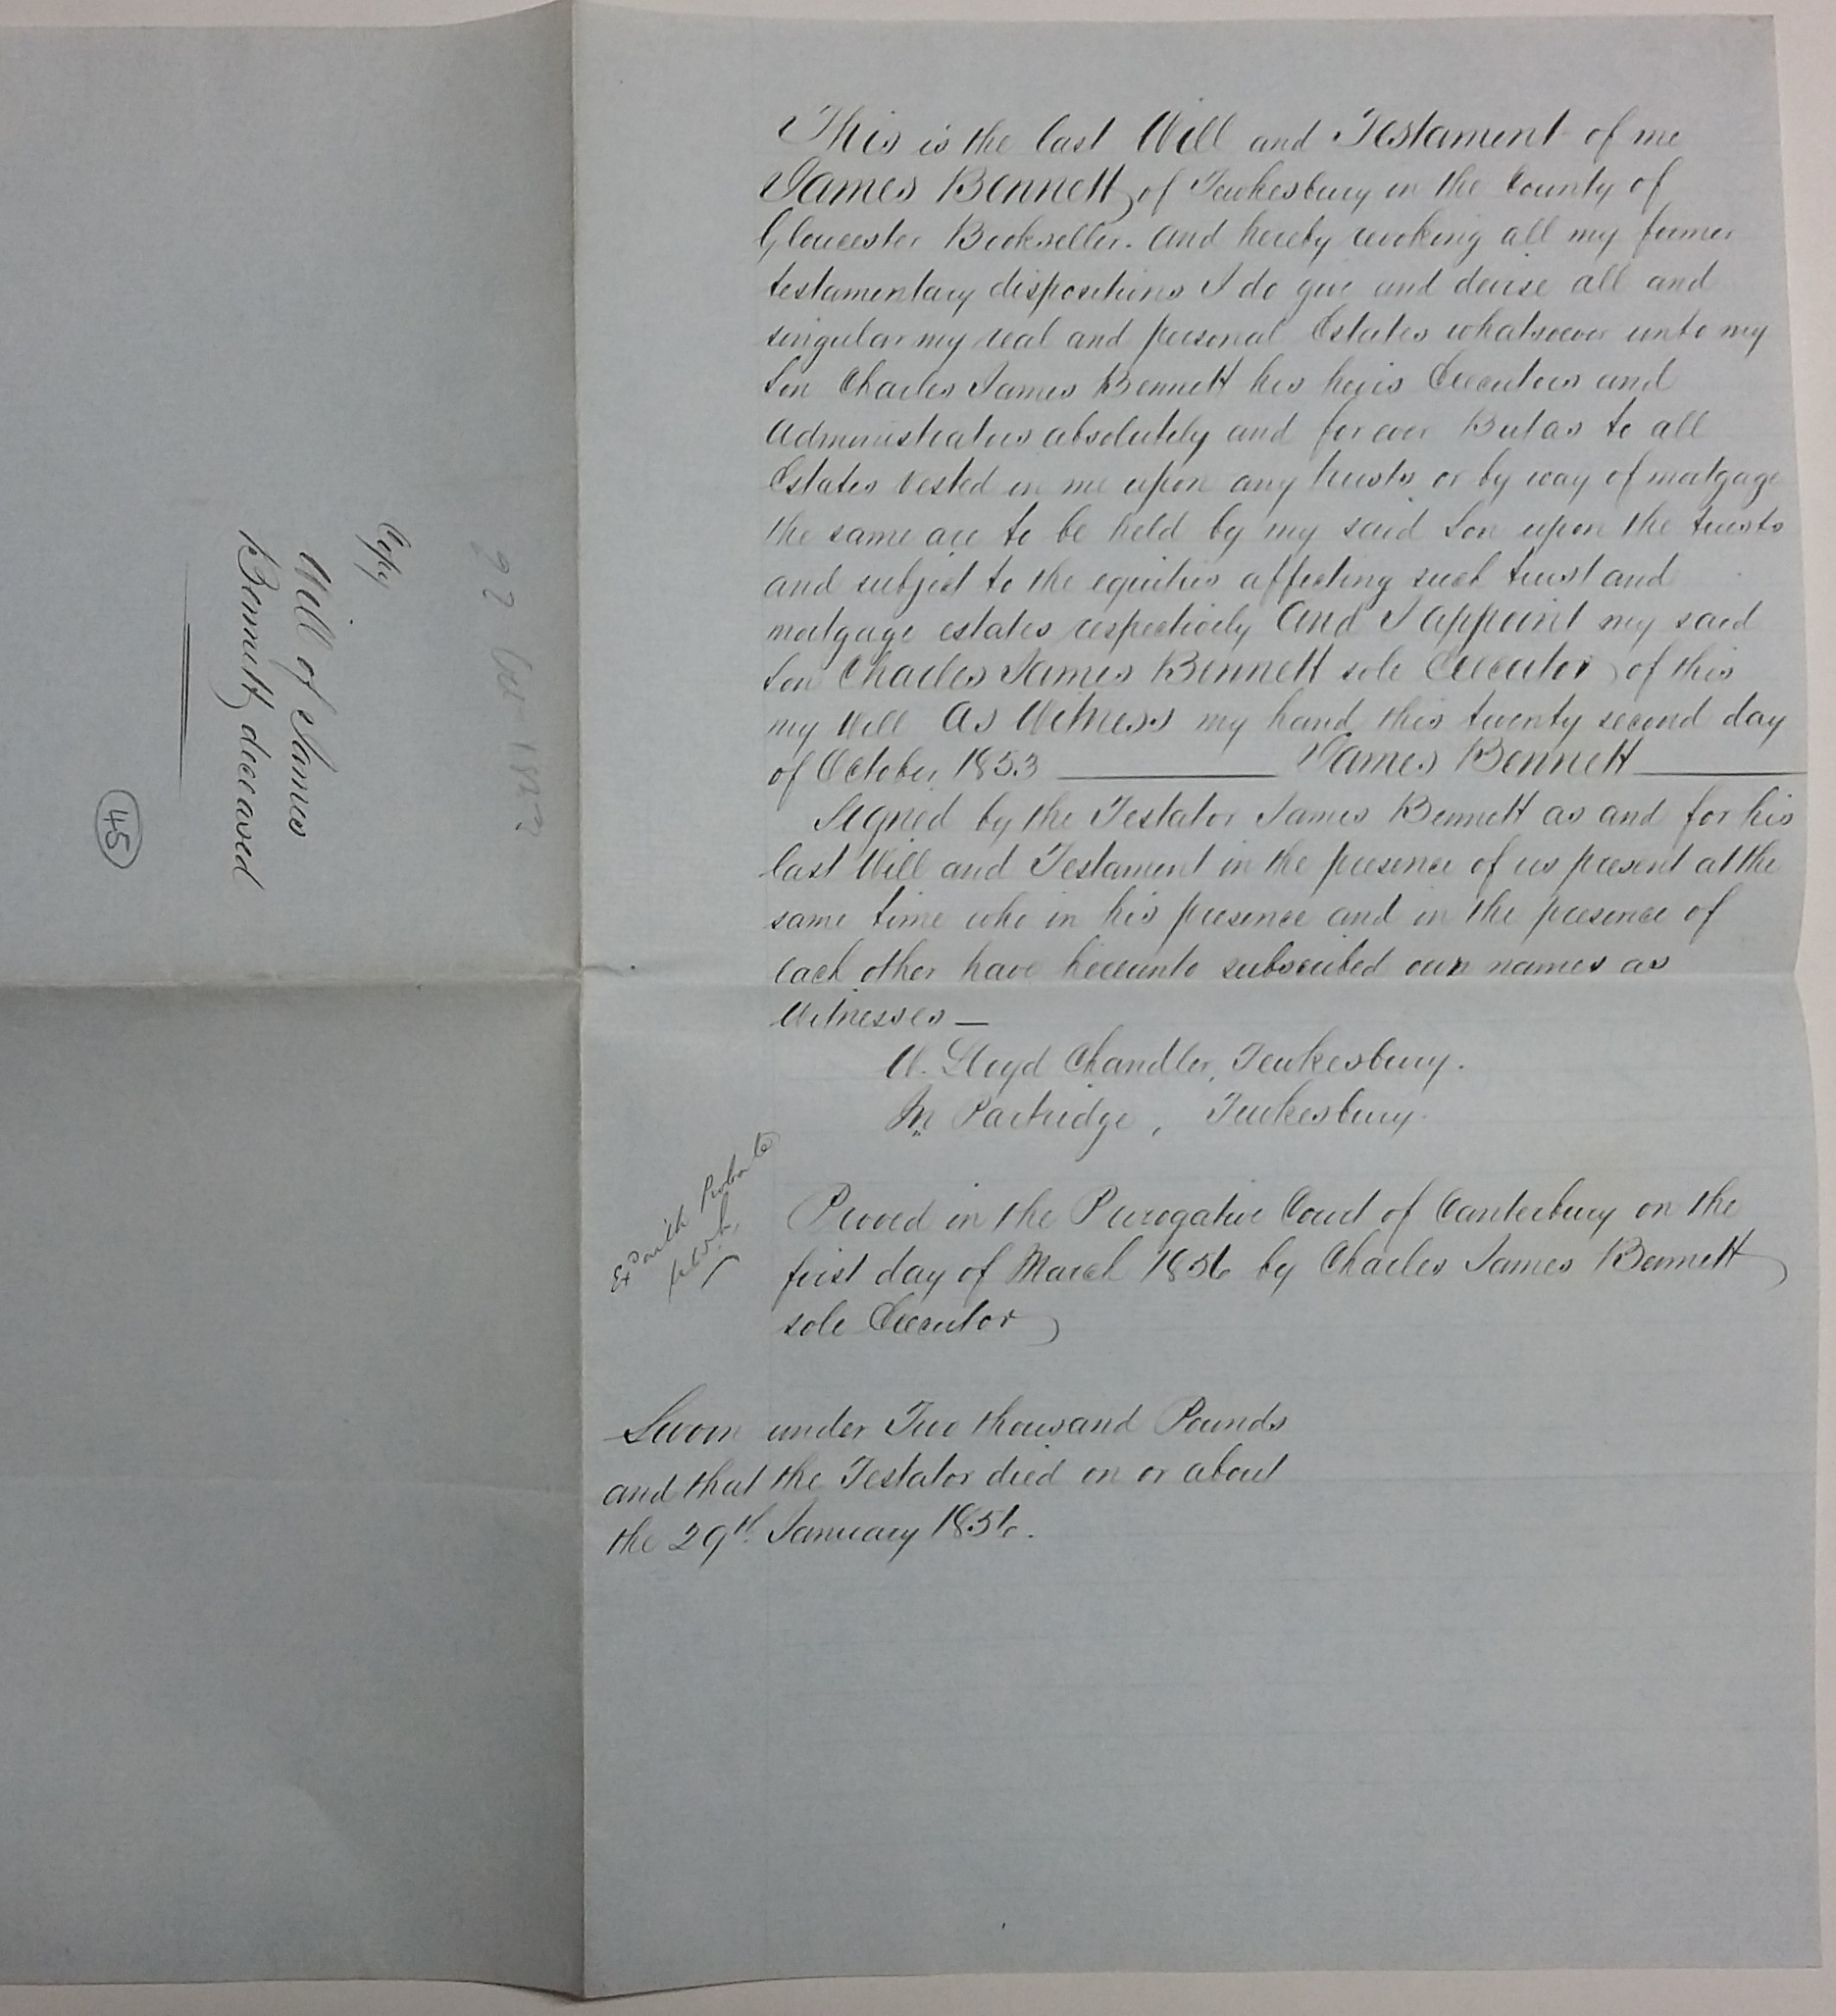 This is the last Will and Testament of me
James Bennett of Tewkesbury in the County of
Gloucester Bookseller. And hereby revoking all my former
testamentary dispositions I do give and devise all and
singular my real and personal Estates whatsoever unto my
Son Charles James Bennett his heirs Executors and
Administrators absolutely and for ever But as to all
Estates vested in me upon any trusts or by way of mortgage
the same are to be held by my said Son upon the trusts
and subject to the equities affecting such trust and
mortgage estates respectively And I appoint my said
Son Charles James Bennett sole Executor of this
my Will As Witness my hand this twenty second day
of October 1853 James Bennett
Signed by the Testator James Bennett as and for his
last Will and Testament in the presence of us present at the
same time who in his presence and in the presence of
each other have hereunto subscribed our names as
Witnesses —
W. Lloyd Chandler, Tewkesbury.
M Partridge, Tewkesbury.
Exd with Probate
Proved in the Prerogative Court of Canterbury on the
first day of March 1856 by Charles James Bennett
sole Executor
Sworn under Two thousand Pounds
and that the Testator died on or about
the 29th January 1856.
22 Oct 1853
Copy
Will of James
Bennett, deceased
45